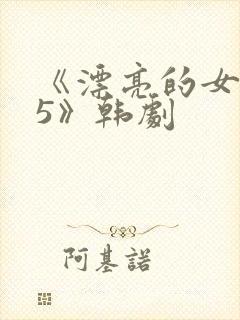 《漂亮的女
5》韩劇
阿基諾